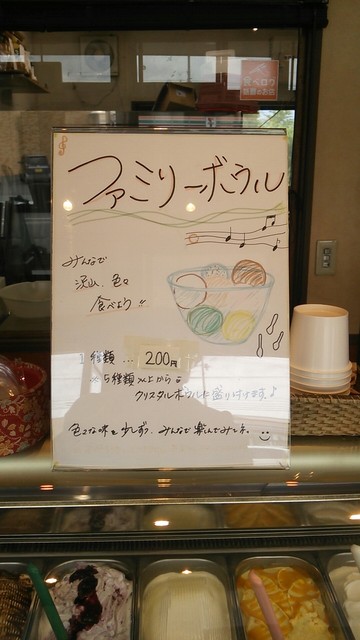 食べログ
ファミリーボウル
みんなで
沢山、色々
食べよう!!
1種類… 200円
※5種類以上から
クリスタルボウルに盛り付けます♪
色々な味を少しずつ、みんなで楽しんでみては。